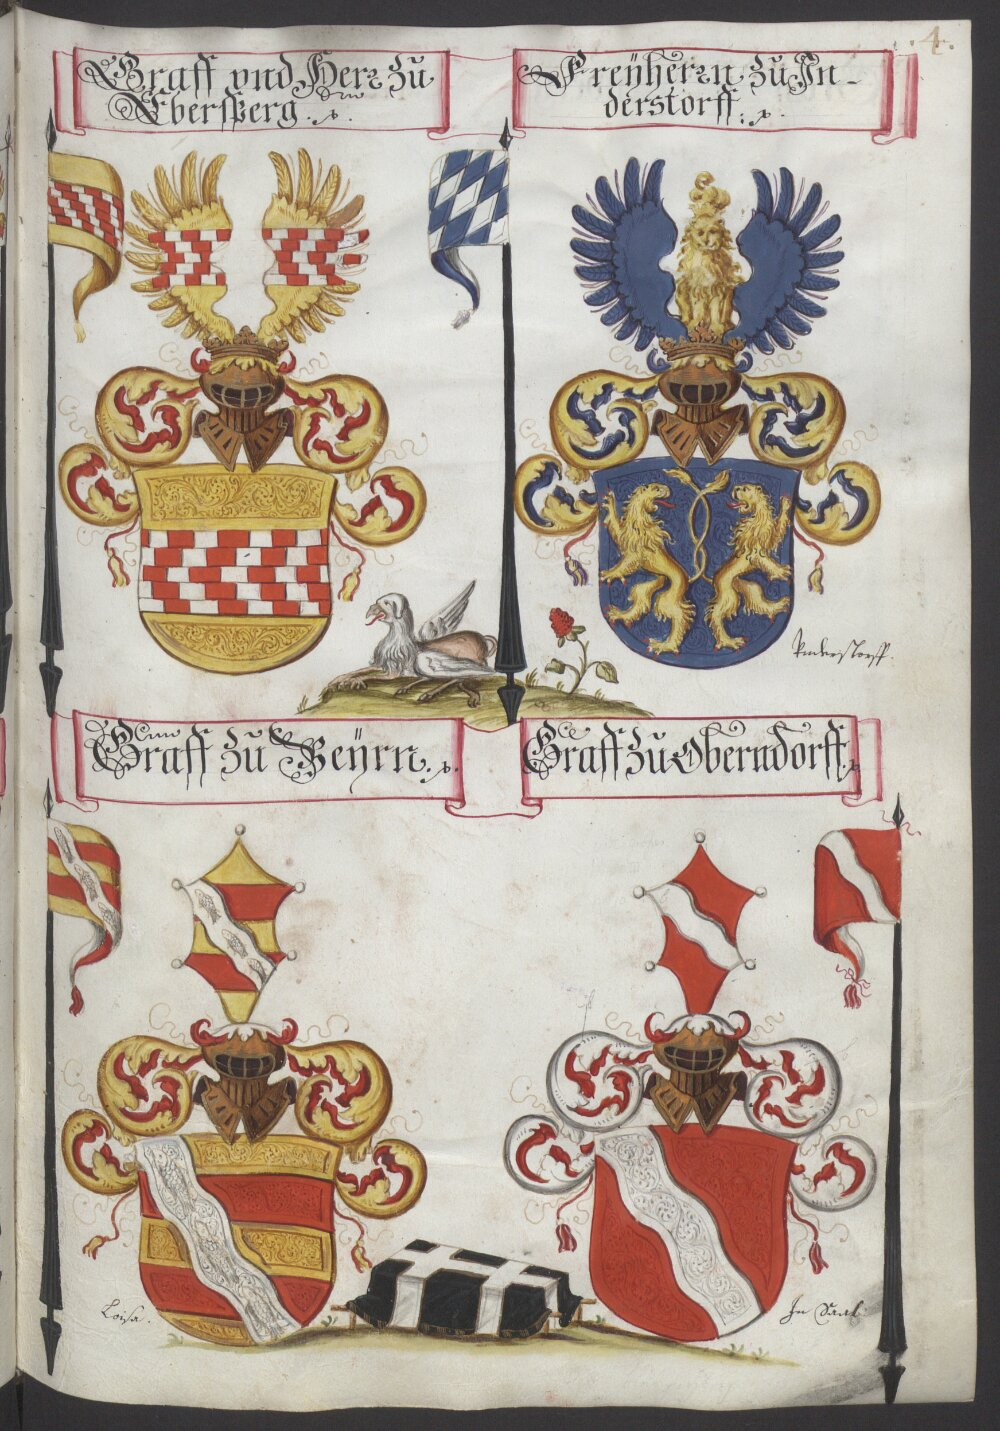 .4.
Graff vnd Herr zu
Ebersperg.
Freÿherrn zu In-
derstorff.
Understorff.
Graff zu Beÿrn.
Graff zu Oberndorff.